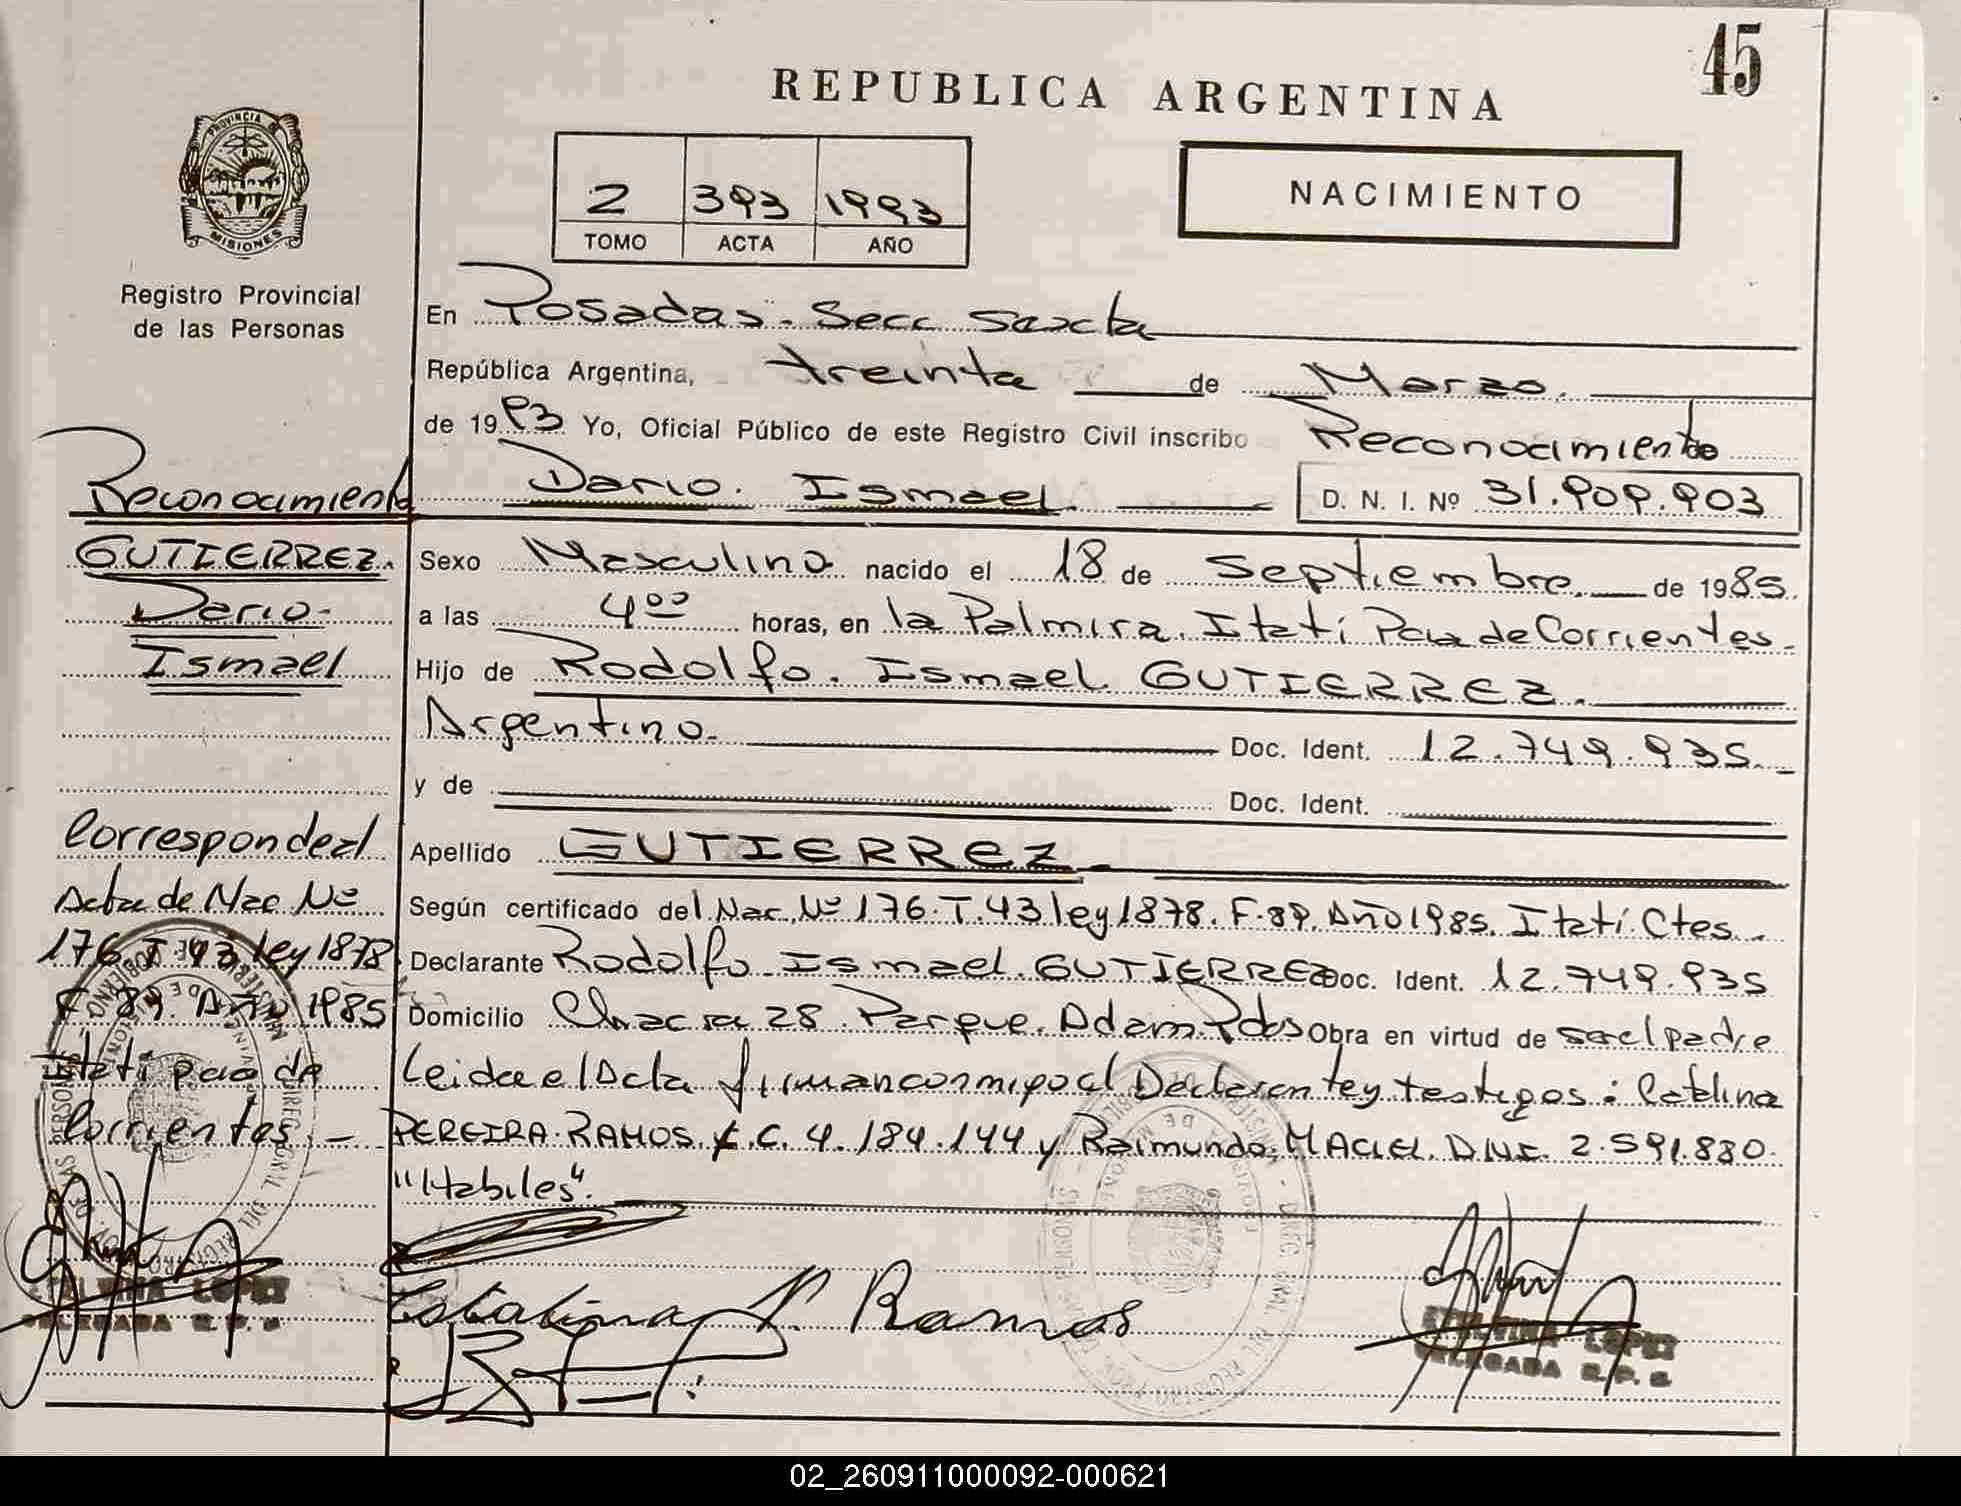 45
REPUBLICA ARGENTINA
PROVINCIA DE
MISIONES
Registro Provincial
de las Personas
2 393 1993
TOMO ACTA AÑO
NACIMIENTO
En Posadas. Secc Sexta
República Argentina, treinta de Marzo.
de 1993 Yo, Oficial Público de este Registro Civil inscribo Reconocimiento
Dario. Ismael. D. N. I. Nº 31.909.903
Sexo Masculino nacido el 18 de Septiembre. de 1985.
a las 4 00 horas, en la Palmira. Itatí Pcia de Corrientes.
Hijo de Rodolfo. Ismael GUTIERREZ.
Argentino. Doc. Ident. 12.749.935.
y de Doc. Ident.
Apellido GUTIERREZ.
Según certificado del Nac. Nº 176. T. 43 ley 1878. F. 89. Año 1985. Itatí. Ctes.
Declarante Rodolfo Ismael. GUTIERREZ Doc. Ident. 12.749.935
Domicilio Chacra 28. Parque. Adam. Pdas Obra en virtud de ser el padre
Leida el Acta firman conmigo el Declarante y testigos: Catalina
PEREIRA. RAMOS. C. 4.184.144 y Raimundo. MACIEL. DNI. 2.591.880.
"Habiles".
Catalina P. Ramos
LOPEZ
DELEGADA R.P.
Reconocimiento
GUTIERREZ.
Dario.
Ismael
Corresponde al
Acta de Nac Nº
176 T 43 ley 1878
F. 89. Año 1985
Itati pcia de
Corrientes.
LOPEZ
DELEGADA R.P.
02_260911000092-000621